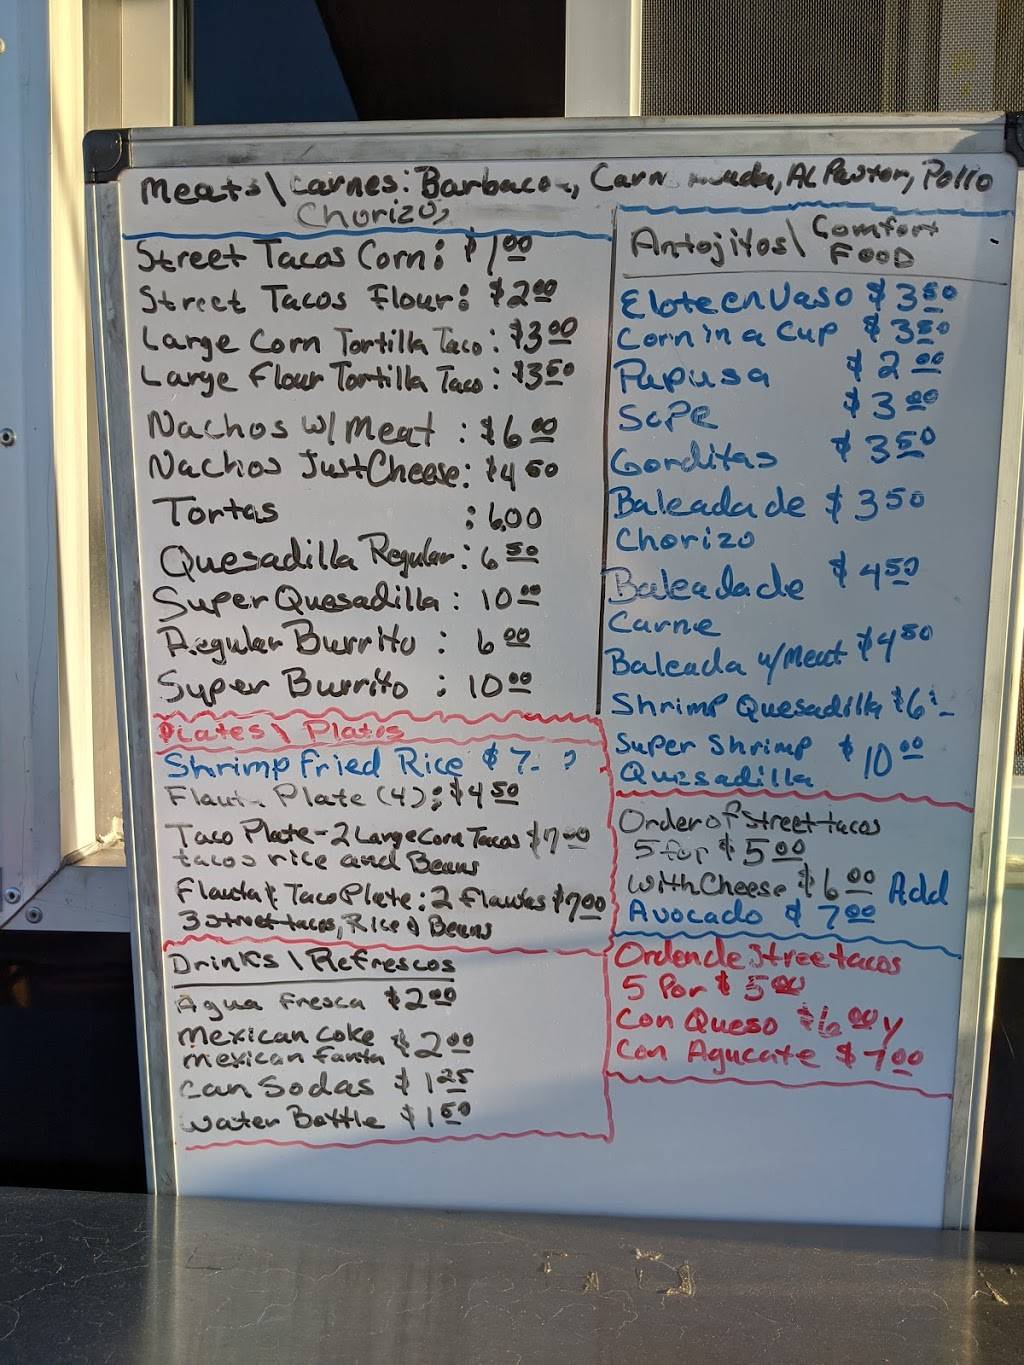 Meats\Carnes: Barbacoa, Carne Asada, Al Pastor, Pollo
Chorizo,
Street Tacos Corn: $1.00
Street Tacos Flour: $2.00
Large Corn Tortilla Taco: $3.00
Large Flour Tortilla Taco: $3.50
Nachos w/Meat : $6.00
Nachos Just Cheese: $4.50
Tortas : 6.00
Quesadilla Regular: 6.50
Super Quesadilla: 10.00
Regular Burrito: 6.00
Super Burrito : 10.00
Plates\Platos
Shrimp Fried Rice $7.
Flauta Plate (4): $4.50
Taco Plate-2 Large Corn Tacos $7.00
tacos rice and Beans
Flauta & Taco Plate: 2 Flautas $7.00
3 street tacos, Rice & Beans
Drinks\Refrescos
Agua Fresca $2.00
Mexican Coke
mexican fanta $2.00
can Sodas $1.25
water Bottle $1.50
Antojitos\Comfort
FOOD
Elote en Vaso $3.50
Corn in a Cup $3.50
Pupusa $2.00
Sope $3.00
Gorditas $3.50
Baleada de $3.50
Chorizo
Baleada de $4.50
Carne
Baleada w/Meat $4.50
Shrimp Quesadilla $6
Super Shrimp $10.00
Quesadilla
Order of Street tacos
5 for $5.00
With Cheese $6.00 Add
Avocado $7.00
Orden de Streetacos
5 Por $5.00
Con Queso $6.00 y
Con Agucate $7.00